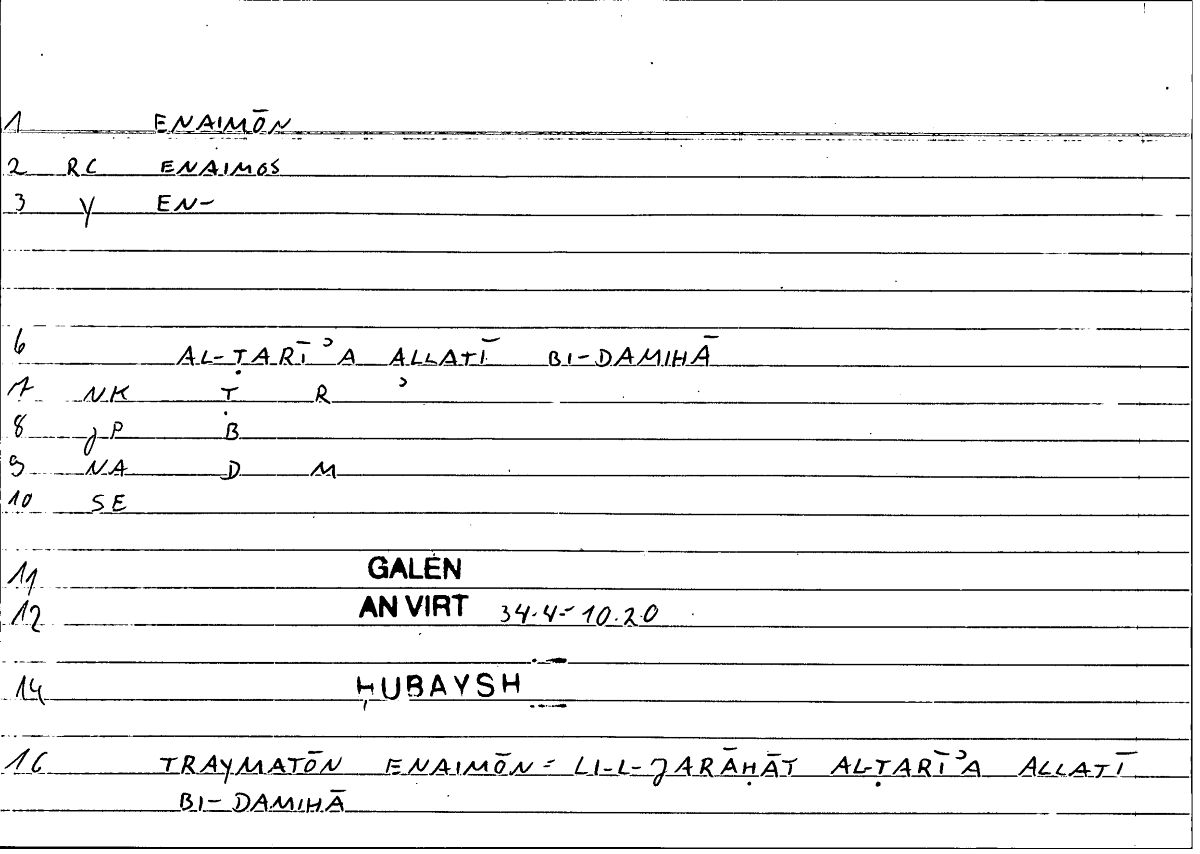 1 ENAIMŌN
2 RC ENAIMOS
3 Y EN-
6 AL-ṬARĪʾA ALLATĪ BI-DAMIHĀ
7 NK Ṭ R ʾ
8 JP B
9 NA D M
10 SE
11 GALEN
12 AN VIRT 34.4-10.20
14 ḤUBAYSH
16 TRAYMATŌN ENAIMŌN = LI-L-JARĀḤĀT AL-ṬARĪʾA ALLATĪ
BI-DAMIHĀ